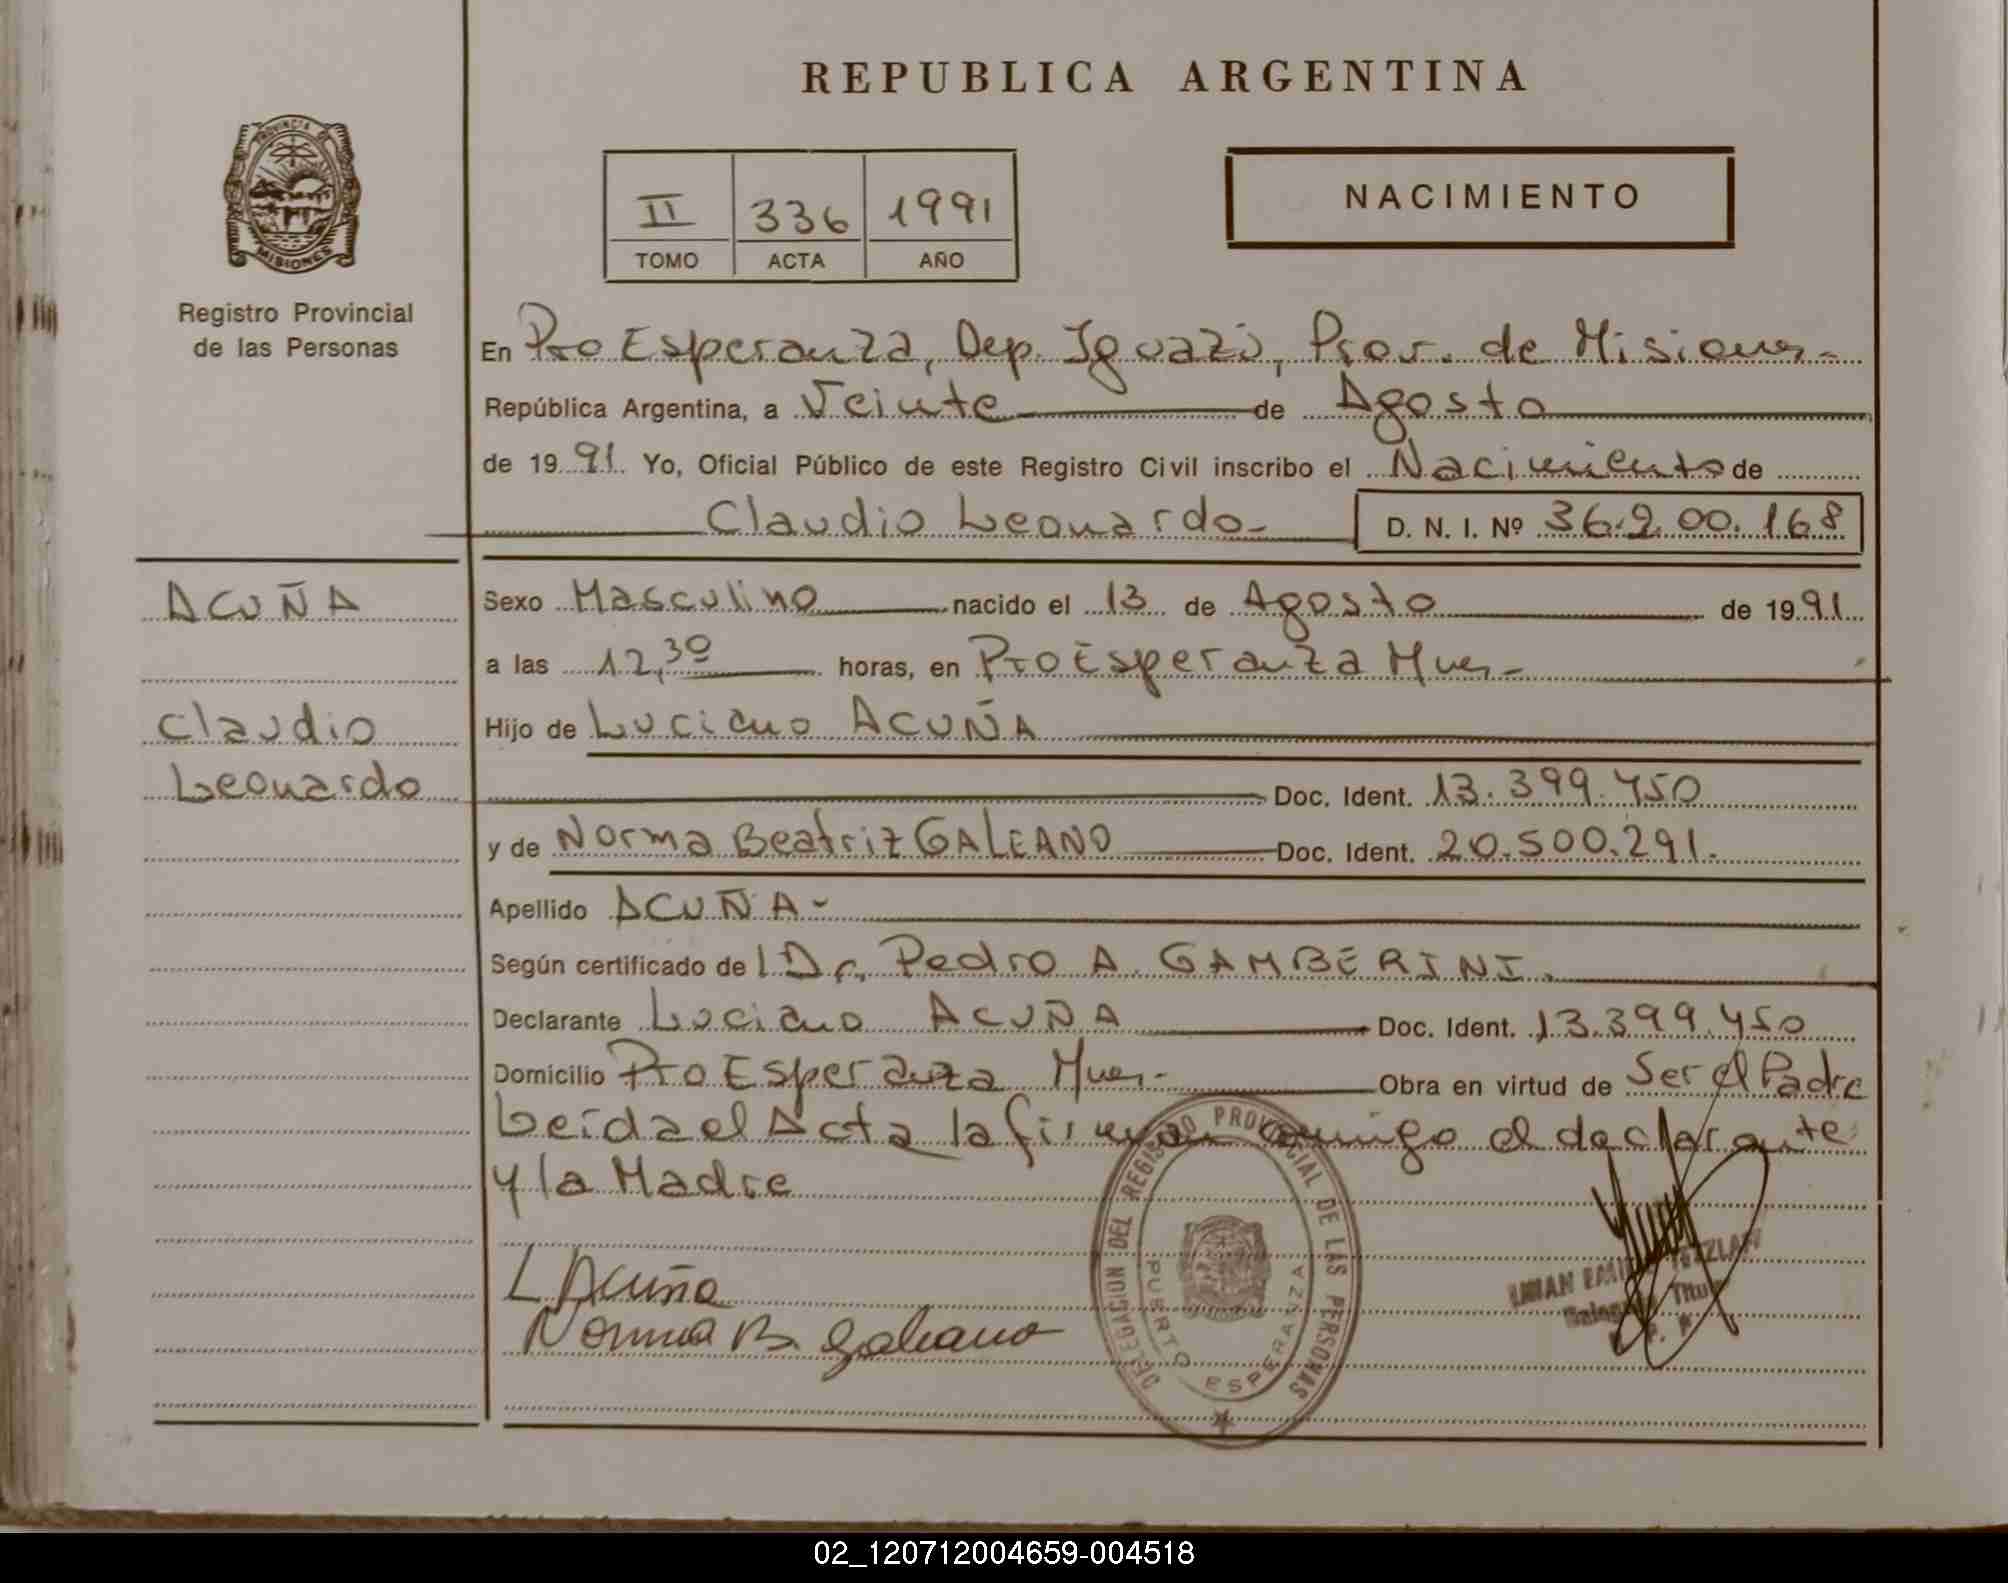 REPUBLICA ARGENTINA
PROVINCIA DE
MISIONES
Registro Provincial
de las Personas
II 336 1991
TOMO ACTA AÑO
NACIMIENTO
En Pto Esperanza, Dep. Iguazú, Prov. de Misiones-
República Argentina, a Veinte de Agosto
de 1991. Yo, Oficial Público de este Registro Civil inscribo el Nacimiento de
Claudio Leonardo- D. N. I. Nº 36.200.168
ACUÑA
Claudio
Leonardo
Sexo Masculino nacido el 13 de Agosto de 1991
a las 12,30 horas, en Pto Esperanza Mnes-
Hijo de Luciano ACUÑA
Doc. Ident. 13.399.450
y de Norma Beatriz GALEANO Doc. Ident. 20.500.291.
Apellido ACUÑA-
Según certificado del Dr. Pedro A. GAMBERINI.
Declarante Luciano ACUÑA Doc. Ident. 13.399.450
Domicilio Pto Esperanza Mnes- Obra en virtud de Ser el Padre
Leída el Acta la firman conmigo el declarante
y la Madre
L Acuña
Norma B. Galeano
DELEGACION DEL REGISTRO PROVINCIAL DE LAS PERSONAS
PUERTO ESPERANZA
02_120712004659-004518